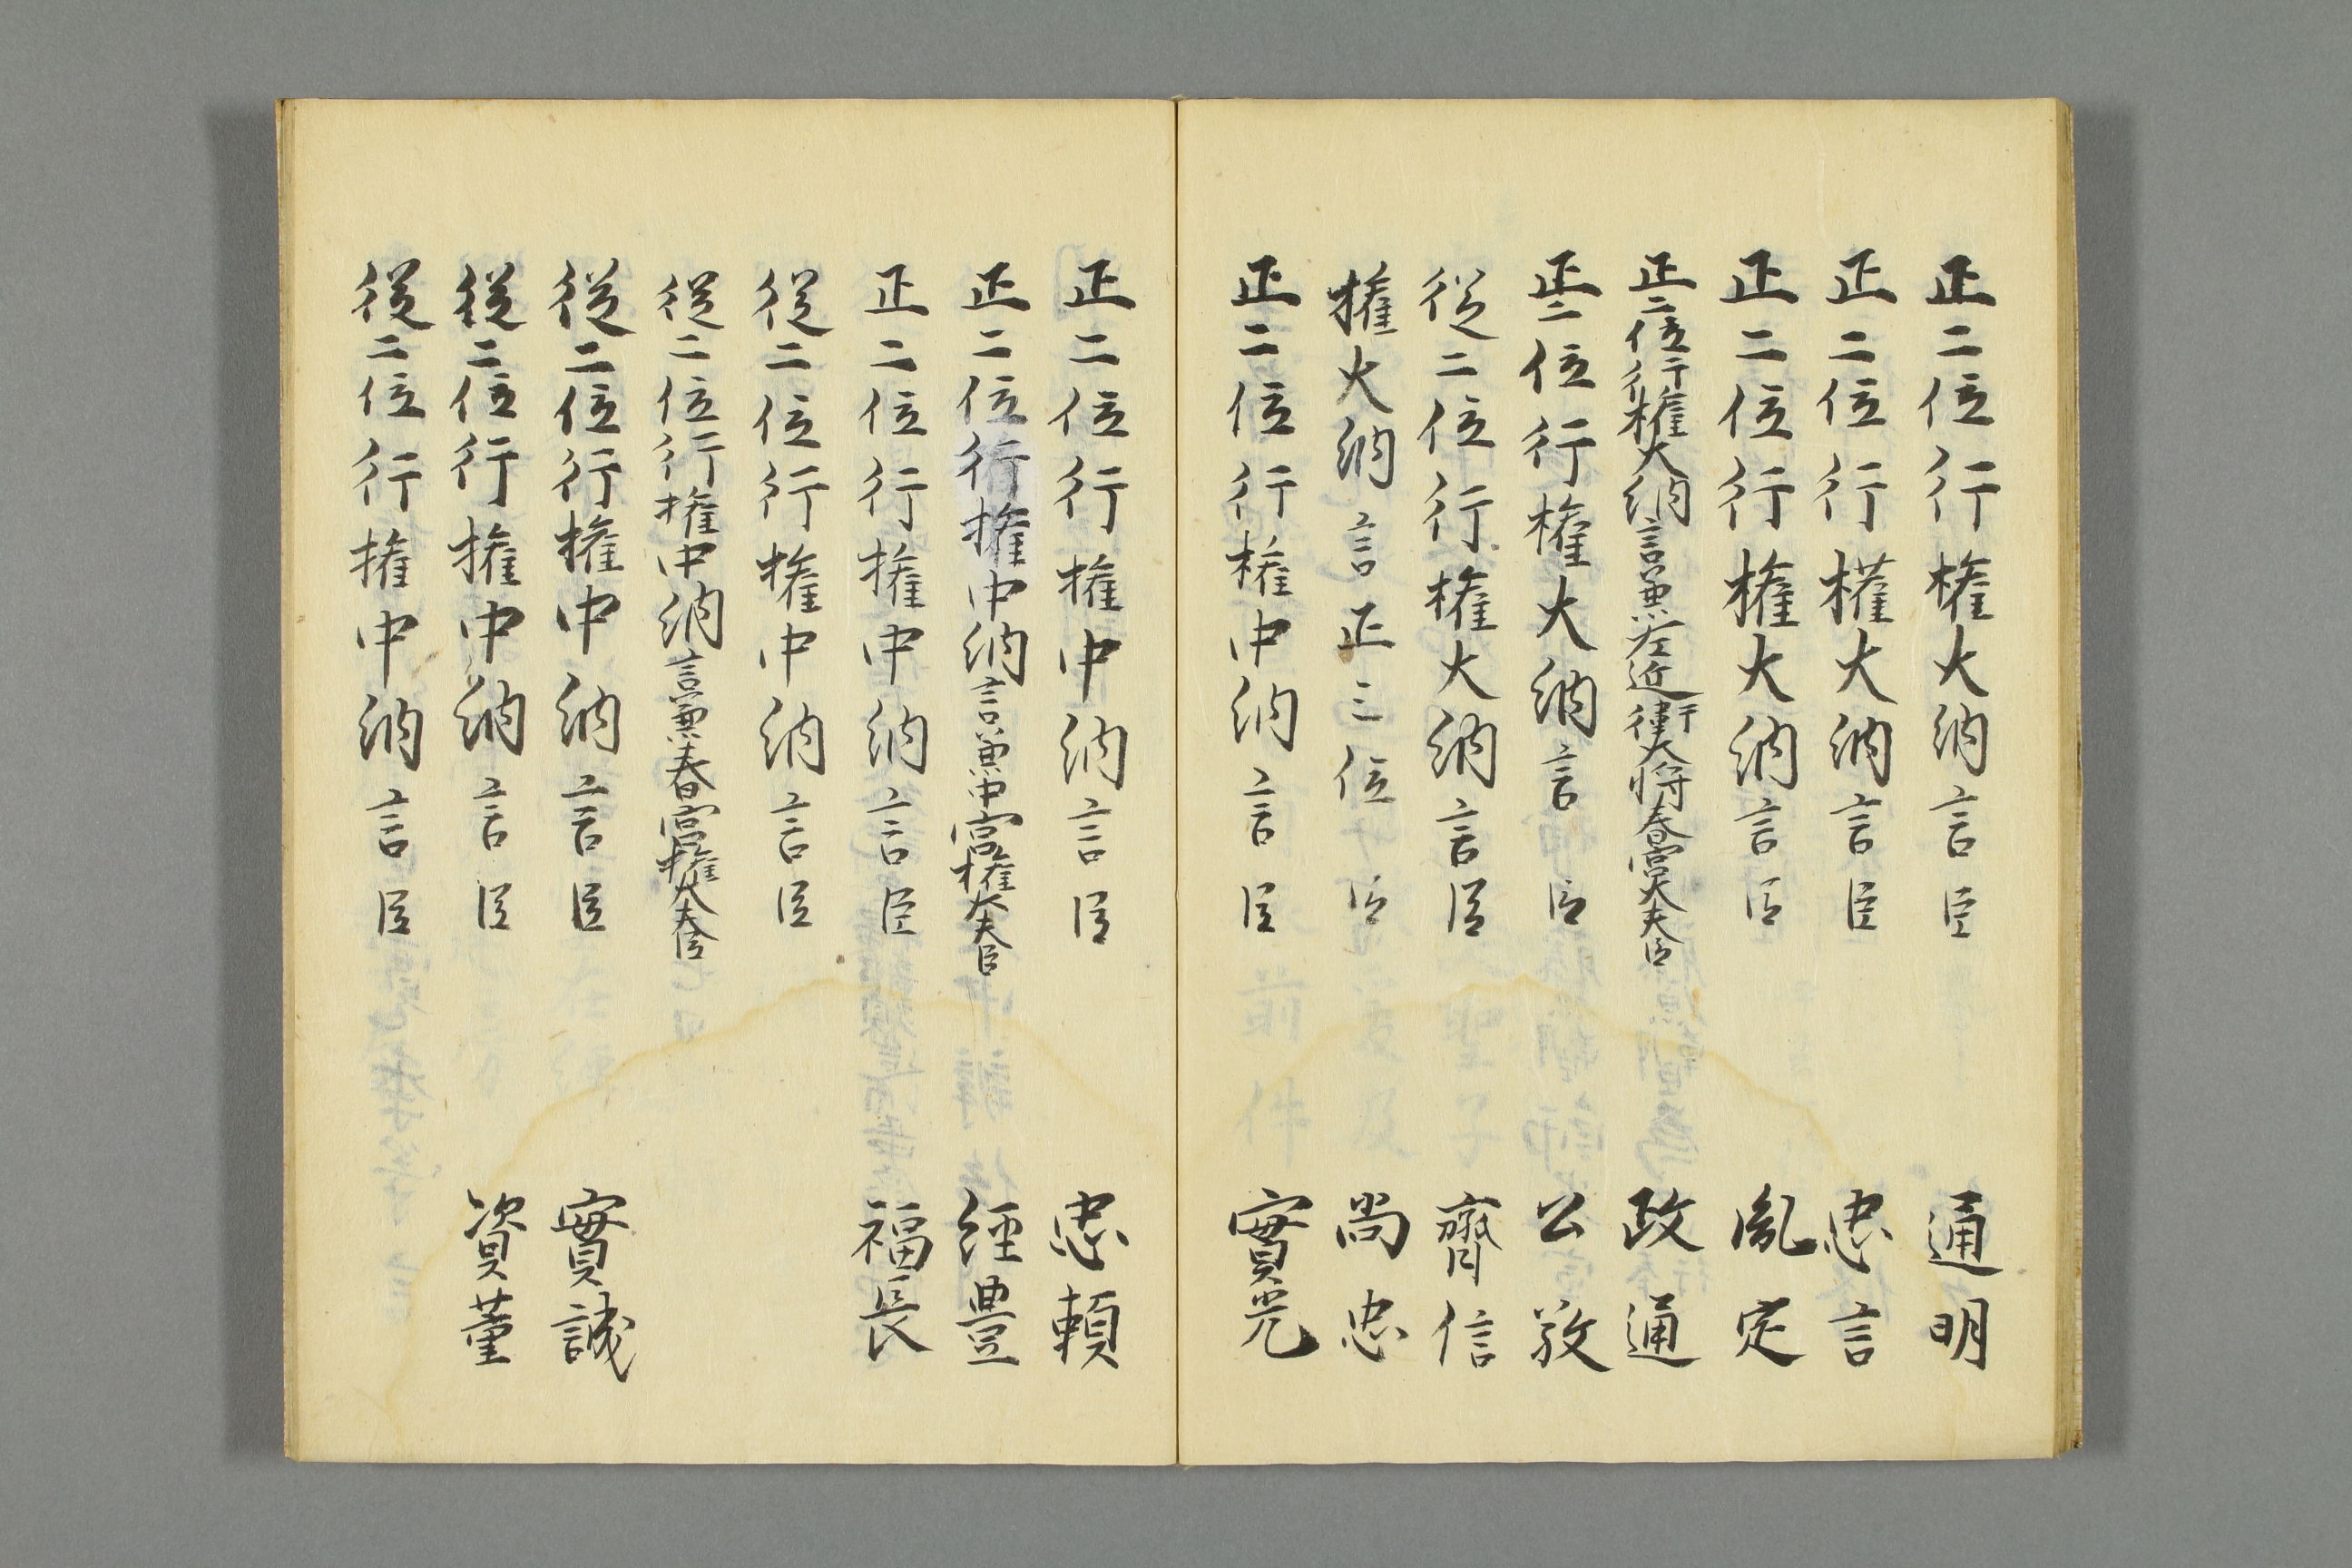 正二位行權大納言臣 通明
正二位行權大納言臣 忠言
正二位行權大納言臣 胤定
正二位行權大納言兼左近衛大将春宮大夫臣 政通
正二位行權大納言臣 公敦
從二位行權大納言臣 齊信
權大納言正三位臣 尚忠
正二位行權中納言臣 實光
正二位行權中納言臣 忠頼
正二位行權中納言兼中宮權大夫臣 經豊
正二位行權中納言臣 福長
從二位行權中納言臣
從二位行權中納言兼春宮權大夫臣
從二位行權中納言臣 實誠
從二位行權中納言臣 資董
從二位行權中納言臣